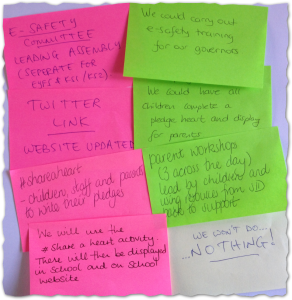 E-SAFETY
COMMITTEE
LEADING ASSEMBLY
(SEPERATE FOR
EYFS & KS1/KS2)
We could carry out
e-safety training
for our governors
TWITTER
LINK
WEBSITE UPDATED
We could have all
children complete a
pledge heart and display
for parents
#shareaheart
- children, staff and parents
to write their pledges
parents workshops
(3 across the day)
lead by children and
using resources from SID
to support
We will use the
# Share a heart activity
These will then be displayed
in School and on School
website
WE WON'T DO...
...NOTHING!